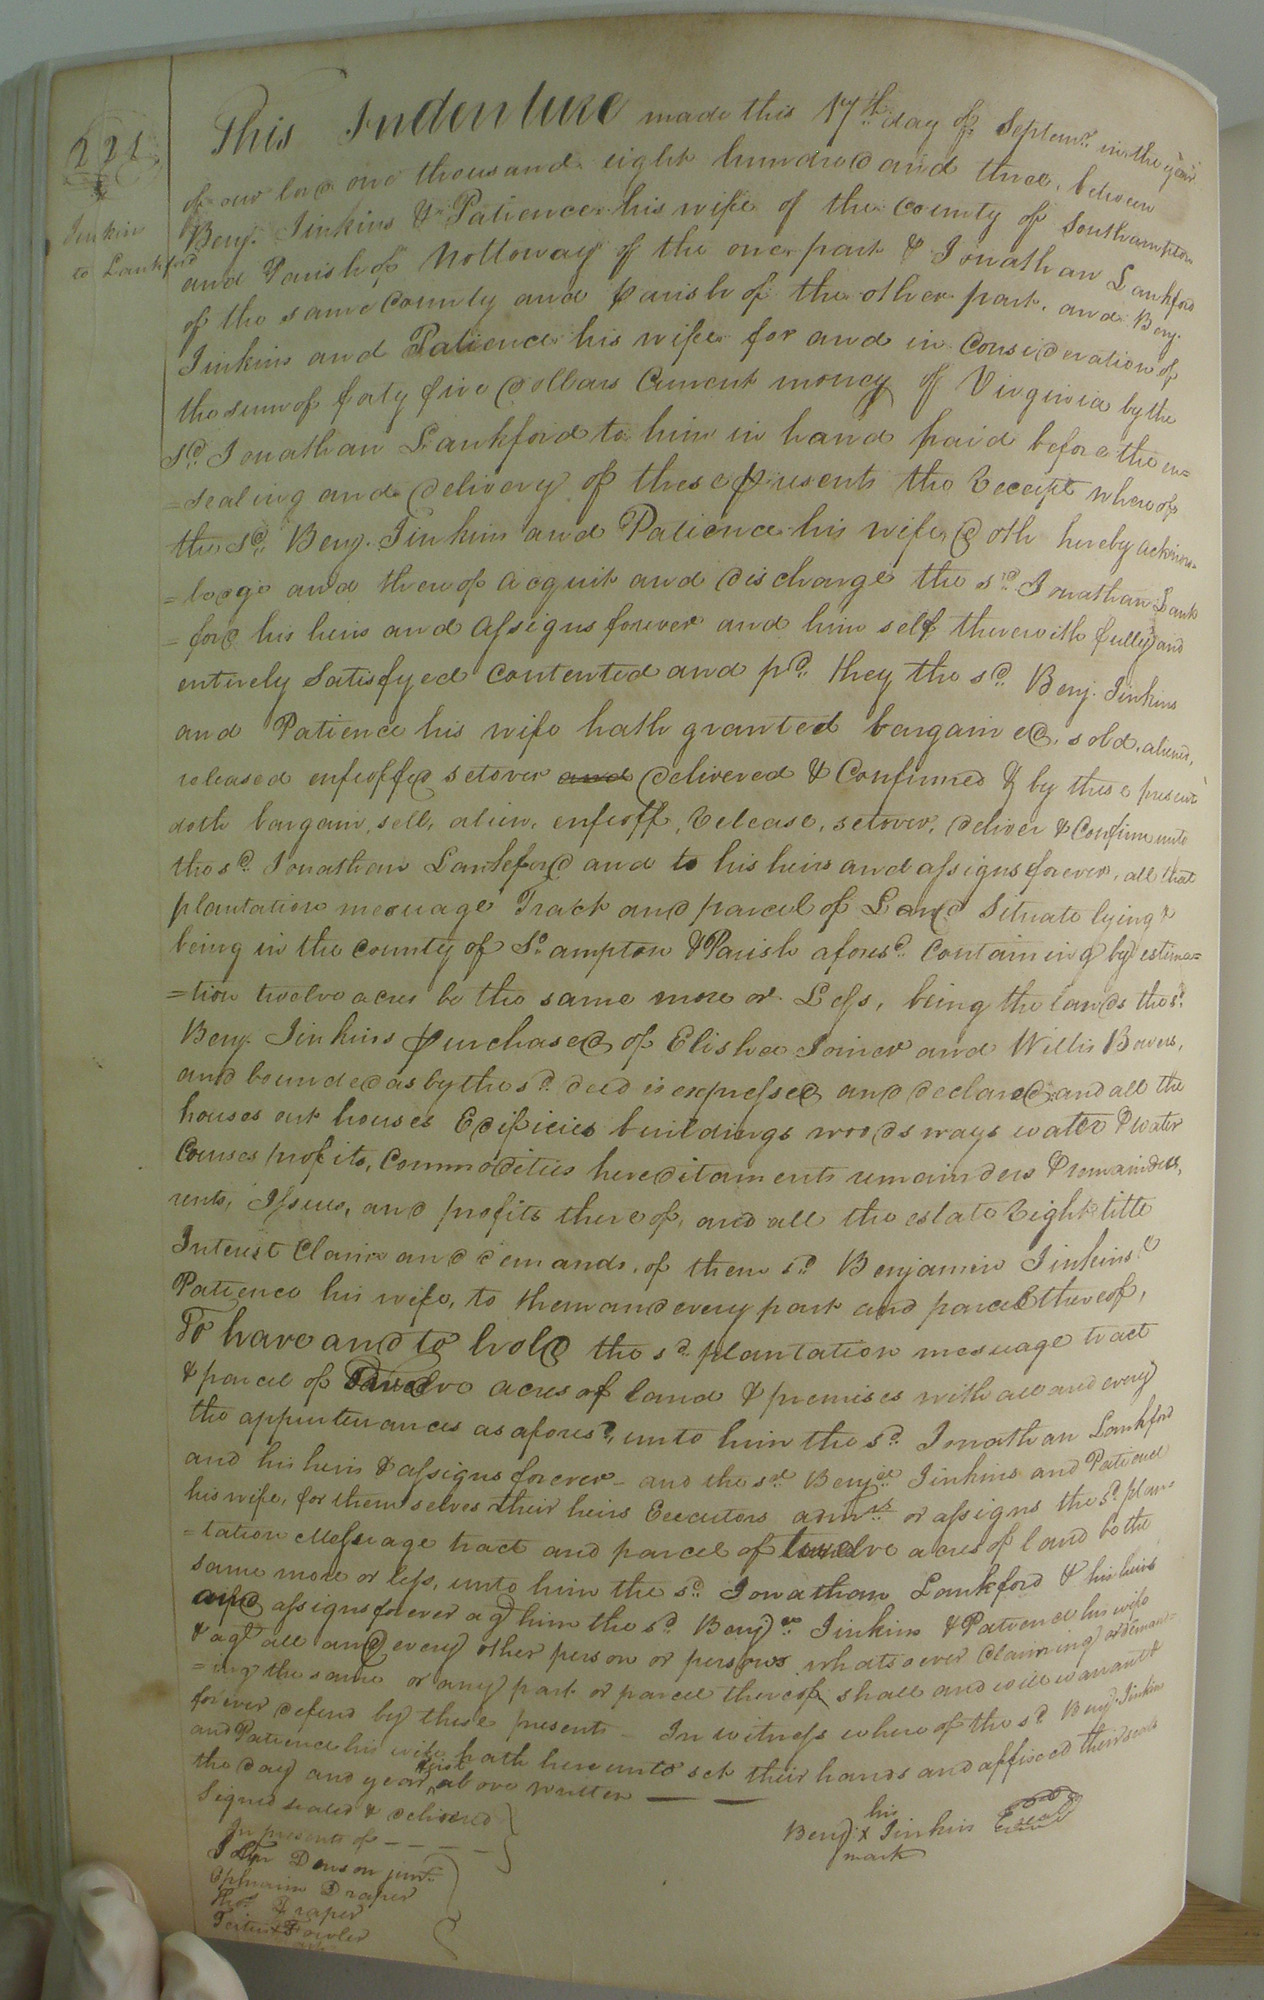 221
Jinkins
to Lankford
This Indenture made this 17th day of Septemr. in the year
of our lord one thousand eight hundred and three, between
Benj. Jinkins & Patience his wife of the County of Southampton
and Parish of Nottoway of the one part & Jonathan Lankford
of the same County and parish of the other part, and Benj.
Jinkins and Patience his wife for and in Consideration of
the sum of forty five dollars Current money of Virginia by the
sd. Jonathan Lankford to him in hand paid before the en=
=sealing and delivery of these presents the Receipt whereof
the sd. Benj. Jinkins and Patience his wife doth hereby acknow=
=ledge and thereof acquit and discharge the sd. Jonathan Lank
=ford his heirs and assigns forever and him self therewith fully and
entirely Satisfyed Contented and pd. they the sd. Benj. Jinkins
and Patience his wife hath granted bargained, sold, aliend,
released enfeoffed setover and delivered & Confirmed & by these presents
doth bargain, sell, alien, enfeoff, Release, setover, deliver & Confirm unto
the sd. Jonathan Lankford and to his heirs and assigns forever, all that
plantation mesuage Track and parcel of Land Situate lying &
being in the County of So. ampton & Parish aforesd. Containing by estima=
=tion twelve acres be the same more or Less, being the lands the sd.
Benj. Jinkins purchased of Elisha Joiner and Willis Bowers,
and bounded as by the sd. deed is expressed and declared and all the
houses out houses Edificies buildings woods ways water & water
Courses profits, Commodities hereditaments remainders & remainders,
rents, Issues, and profits thereof, and all the estate Right title
Interest Claim and demands, of them sd. Benjamin Jinkins &
Patience his wife, to them and every part and parcel thereof,
To have and to hold the sd. plantation mesuage tract
& parcel of Twelve acres of land & premises with all and every
the appurtenances as aforesd, unto him the sd. Jonathan Lankford
and his heirs & assigns forever - and the sd. Benja. Jinkins and Patience
his wife, for themselves their heirs Executors admrs. or assigns the sd. plan=
=tation Messuage tract and parcel of twelve acres of land be the
same more or less, unto him the sd. Jonathan Lankford & his heirs
and assigns forever agt him the sd. Benj. Jinkins & Patience his wife
& agt all and every other person or persons whatsoever Claiming or demand=
=ing the same or any part or parcel thereof, shall and will warrant &
forever defend by these presents - In witness whereof the sd. Benj. Jinkins
and Patience his wife hath hereunto set their hands and affixed their seals
the day and year first above written
Signed sealed & delivered
In presents of
John Dawson junr.
Ephraim Draper
Thos. Draper
Fowler
his
Benj x Jinkins Seal
mark